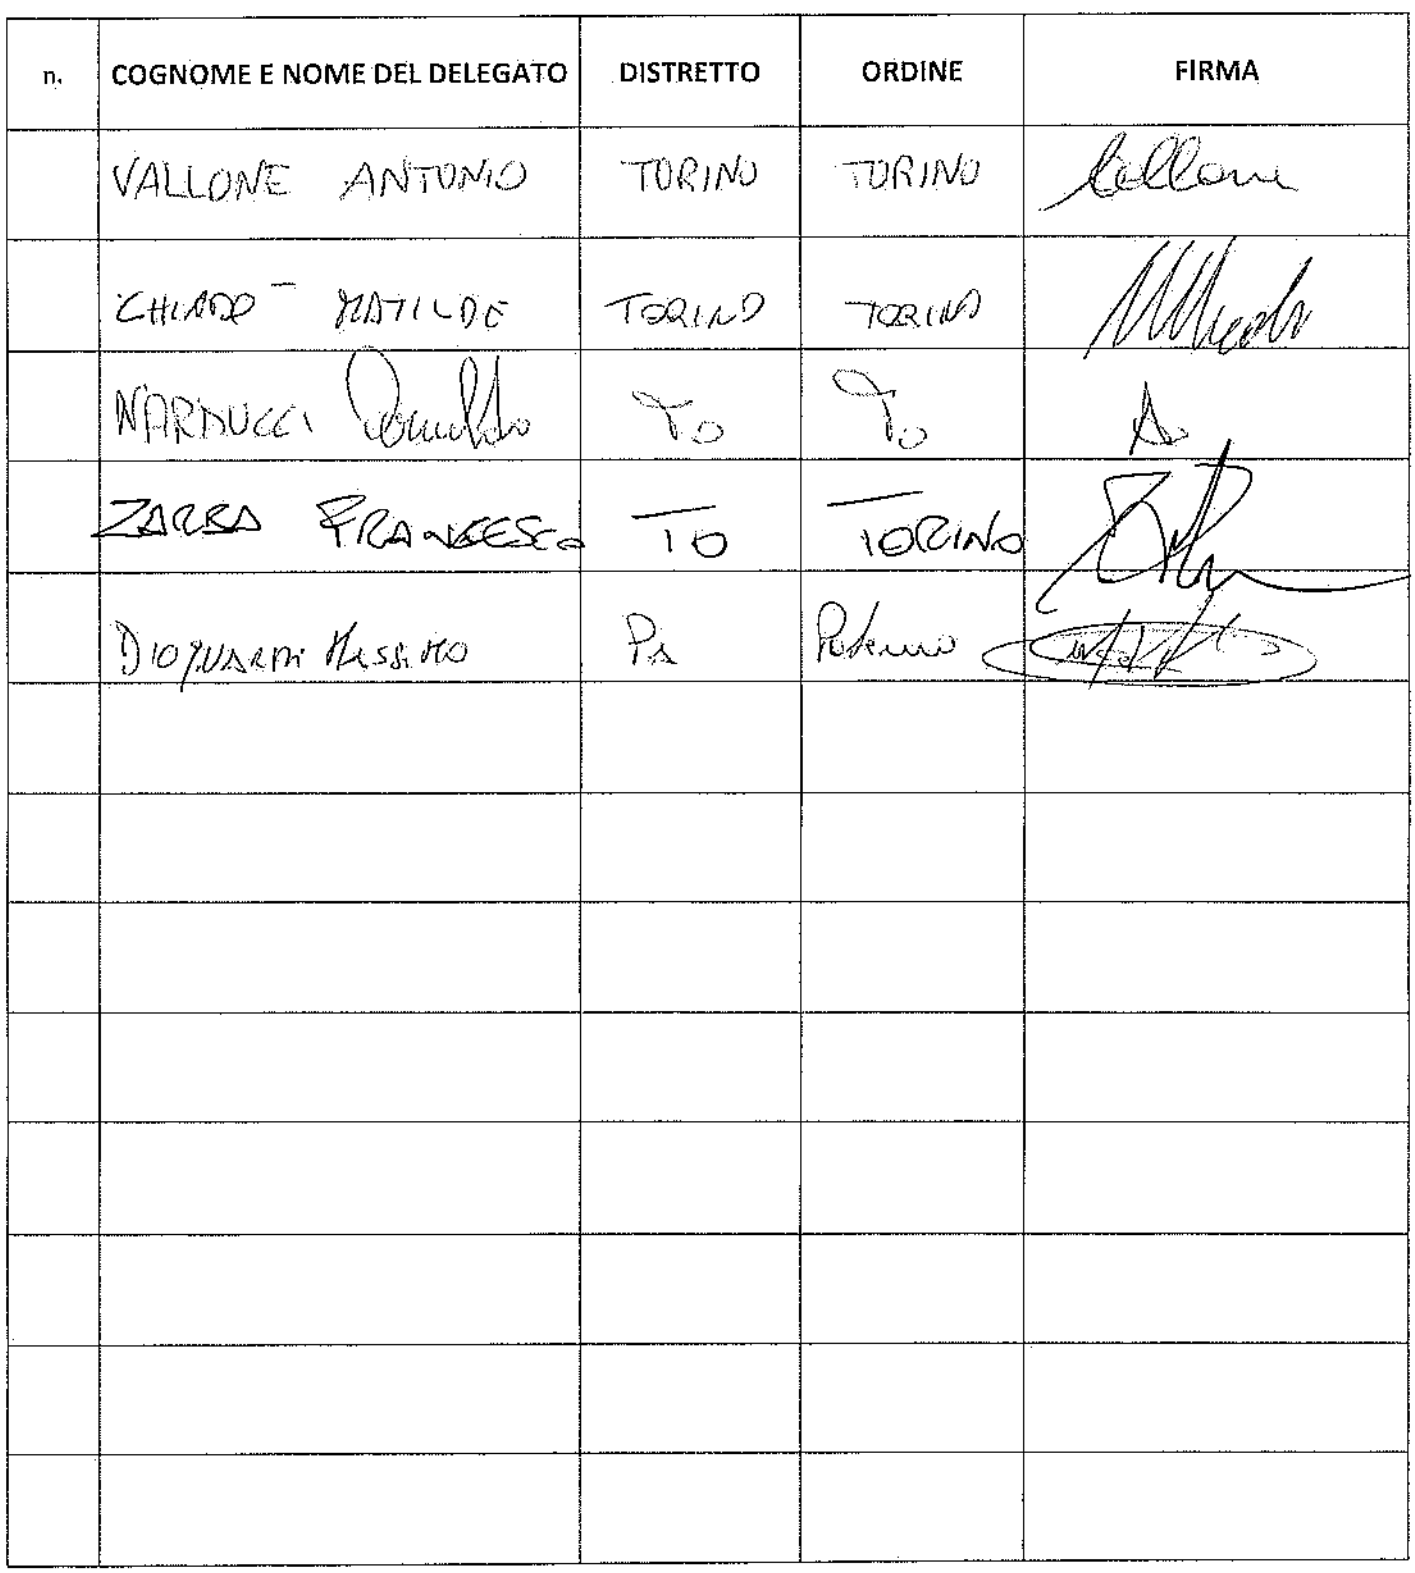 n. COGNOME E NOME DEL DELEGATO DISTRETTO ORDINE FIRMA
VALLONE ANTONIO TORINO TORINO Vallone
CHIADO- MATILDE TORINO TORINO
NARDUCCI Romualdo To To
ZARBA FRANCESCO TO TORINO
DIOGUARDI MASSIMO PA Palermo